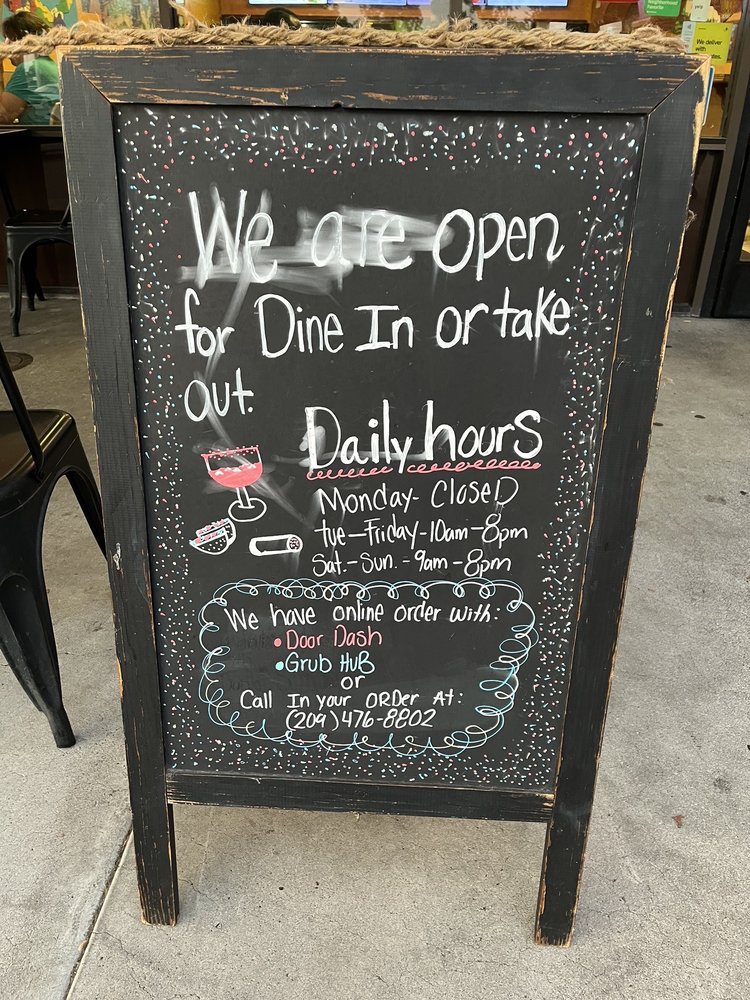 Neighborhood Favorite
We deliver with
We are open
for Dine In or take
out.
Daily hours
Monday- CloseD
tue-Friday-10am-8pm
Sat.-Sun.-9am-8pm
We have online order with:
• Door Dash
• Grub HuB
or
Call In your ORDer At:
(209)476-8802